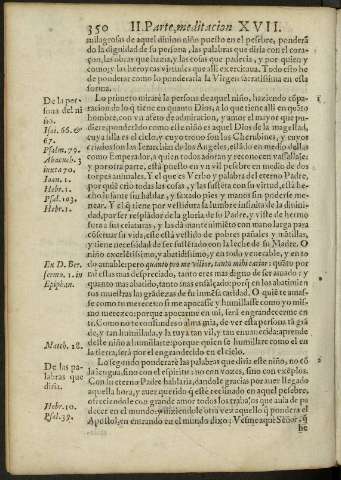 350 II. Parte, meditacion XVII.
milagrosas de aquel diuino niño puesto en el pesebre, ponderã
do la dignidad de su persona, las palabras que diria con el cora-
çon, las obras que hazia, y las cosas que padecia, y por quien y
como; y las heroycas virtudes que alli exercitaua. Todo esto he
de ponderar como lo ponderaria la Virgen sacratissima en esta
forma.
De la per-
sona del ni
ño.
Isai. 66. &
67.
Psalm. 79.
Abacuch. 3
iuxta 70.
Ioan. 1.
Hebr. 1.
Psal. 103.
Hebr. 1.
Lo primero mirarè la persona de aquel niño, haziendo cõpa-
racion de lo q̃ tiene en quanto Dios, a lo que tiene alli en quãto
hombre, con vn afeto de admiracion, y amor el mayor que pu-
diere: ponderando como este niño es aquel Dios de la magestad,
cuya silla es el cielo, y cuyo trono son los Cherubines, y cuyos
criados son las Ierarchias de los Angeles, estãdo en medio dellas
como Emperador, a quien todos adoran y reconocen vassallaje:
y por otra parte, està puesto en vn vil pesebre en medio de dos
torpes animales. Y el que es Verbo y palabra del eterno Padre,
por quiẽ criò todas las cosas, y las sustẽta con su virtud, està he-
cho infante sin hablar, y faxado pies y manos sin poderse me-
near. Y el q̃ tiene por vestidura la lumbre infinita de la diuini-
dad, por ser resplãdor de la gloria de su Padre, y viste de hermo
sura a sus criaturas, y las dà mantenimiẽto con mano larga para
cõseruar su vida; esse està vestido de pobres pañales y mãtillas,
y tiene necessidad de ser sustẽtado con la leche de su Madre. O
niño excelẽtissimo, y abatidissimo, y en todo venerable, y en to
En D. Ber.
serm. 1. in
Epiphan.
do amable: pero quanto pro me vilior, tanto mihi carior: quãto por
mi estas mas despreciado, tanto eres mas digno de ser amado: y
quanto mas abatido, tanto mas ensalçado; porq̃ en los abatimien
tos muestras las grãdezas de tu immẽsa caridad. O quiẽ te amas-
se como tu mereces: o si me apocasse y humillasse como yo mis-
mo merezco: porque apocarme en mi, serà engrandecerme en
te. Como no te confundes, o alma mia, de ver esta persona tã grã
de, y tan humillada, y la tuya tan vil, y tan engreida: aprende
Matth. 18.
deste niño a humillarte: porque quien se humillare como el en
la tierra, serà por el engrandecido en el cielo.
De las pa-
labras que
diria.
Hebr. 10.
Psal. 39.
Lo segundo ponderarè las palabras que diria este niño, no cõ
la lengua, sino con el espiritu: no con vozes, sino con exẽplos.
Con su eterno Padre hablaria, dandole gracias por auer llegado
aquella hora, y auer querido q̃ este reclinado en aquel pesebre,
ofreciendole con grande amor todos los trabajos que auia de pa
decer en el mundo: diziẽdole otra vez aquello q̃ pondera el
Apostol, en entrando en el mundo dixo; Vesme aqui Señor, q̃
he